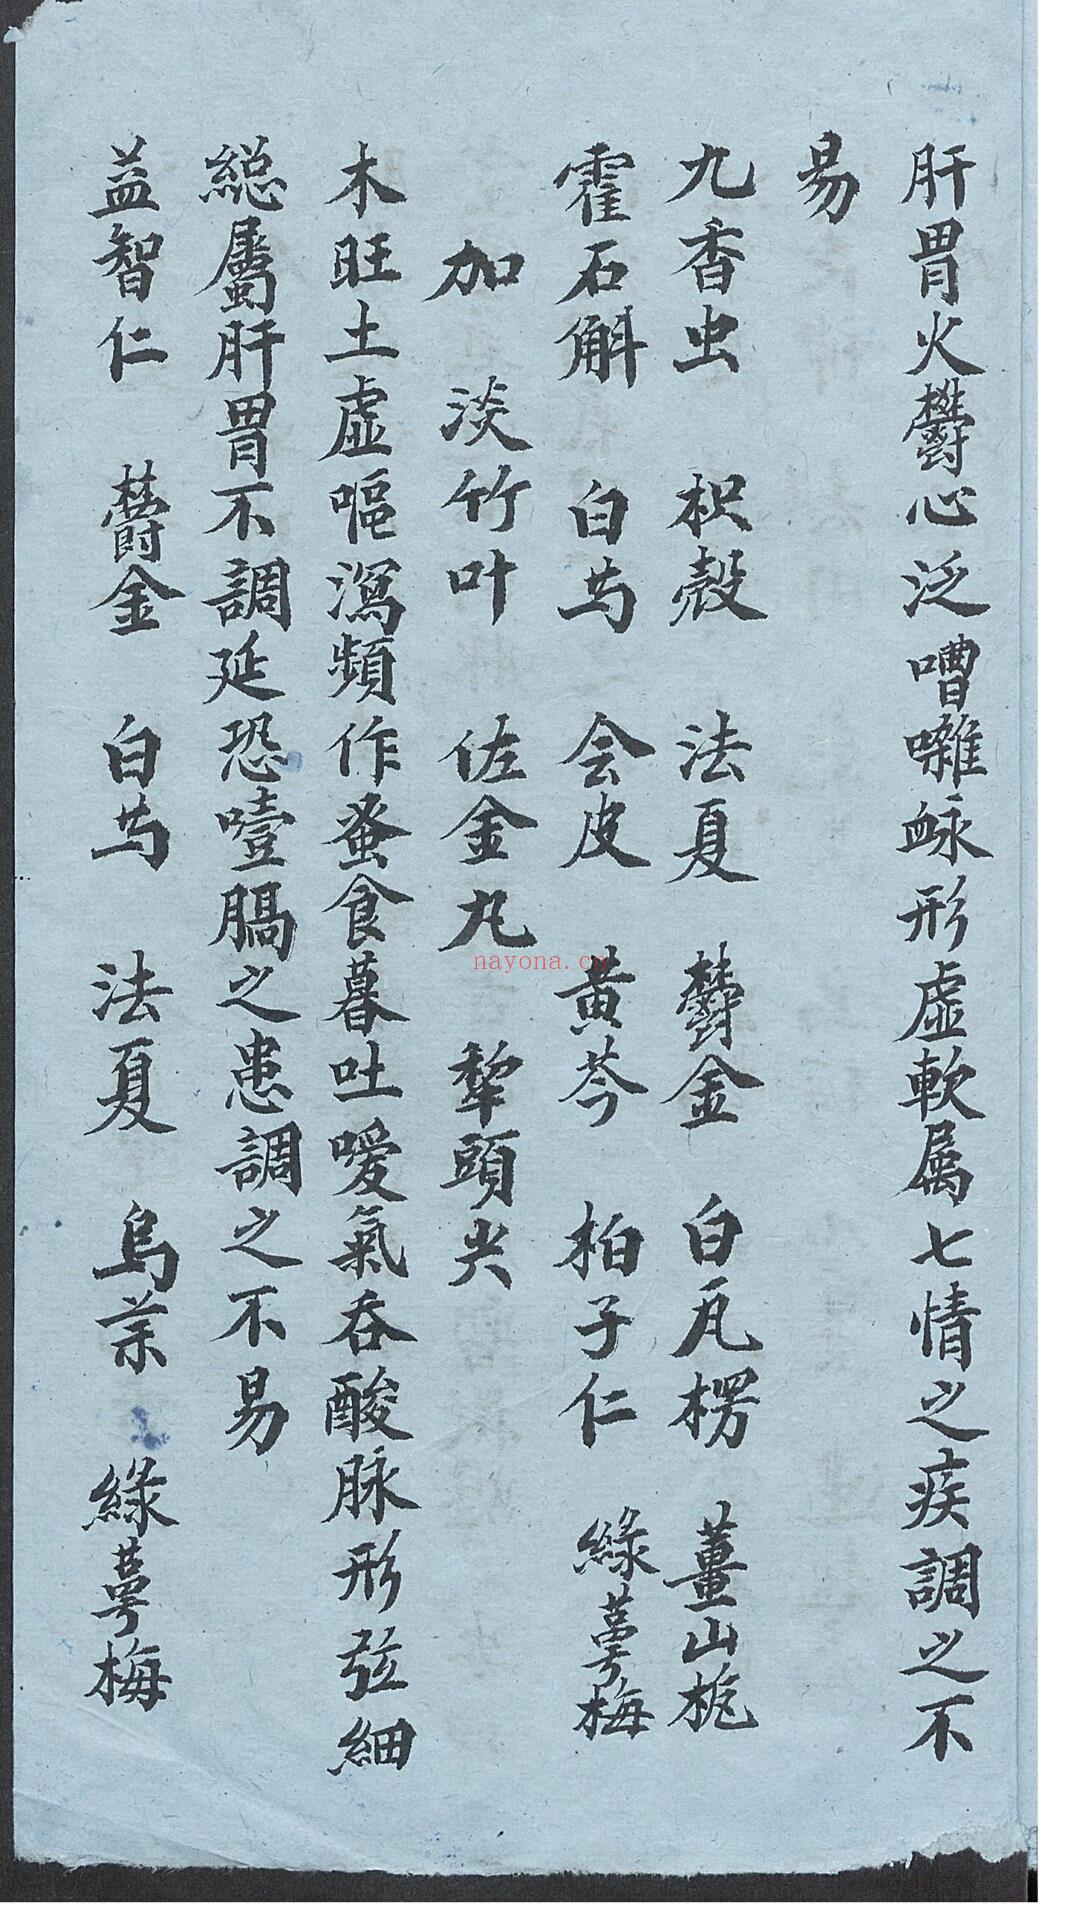 肝胃火鬱心泛嘈囃脉形虛軟属七情之疾調之不
易
九香虫 枳殼 法夏 鬱金 白瓦楞 薑山栀
霍石斛 白芍 会皮 黄芩 柏子仁 綠萼梅
加 淡竹叶 佐金丸 犂頭尖
木旺土虛嘔瀉頻作蚤食暮吐噯氣吞酸脉形弦細
総屬肝胃不調延恐噎膈之患調之不易
益智仁 鬱金 白芍 法夏 烏茉 綠萼梅
nayona.cn